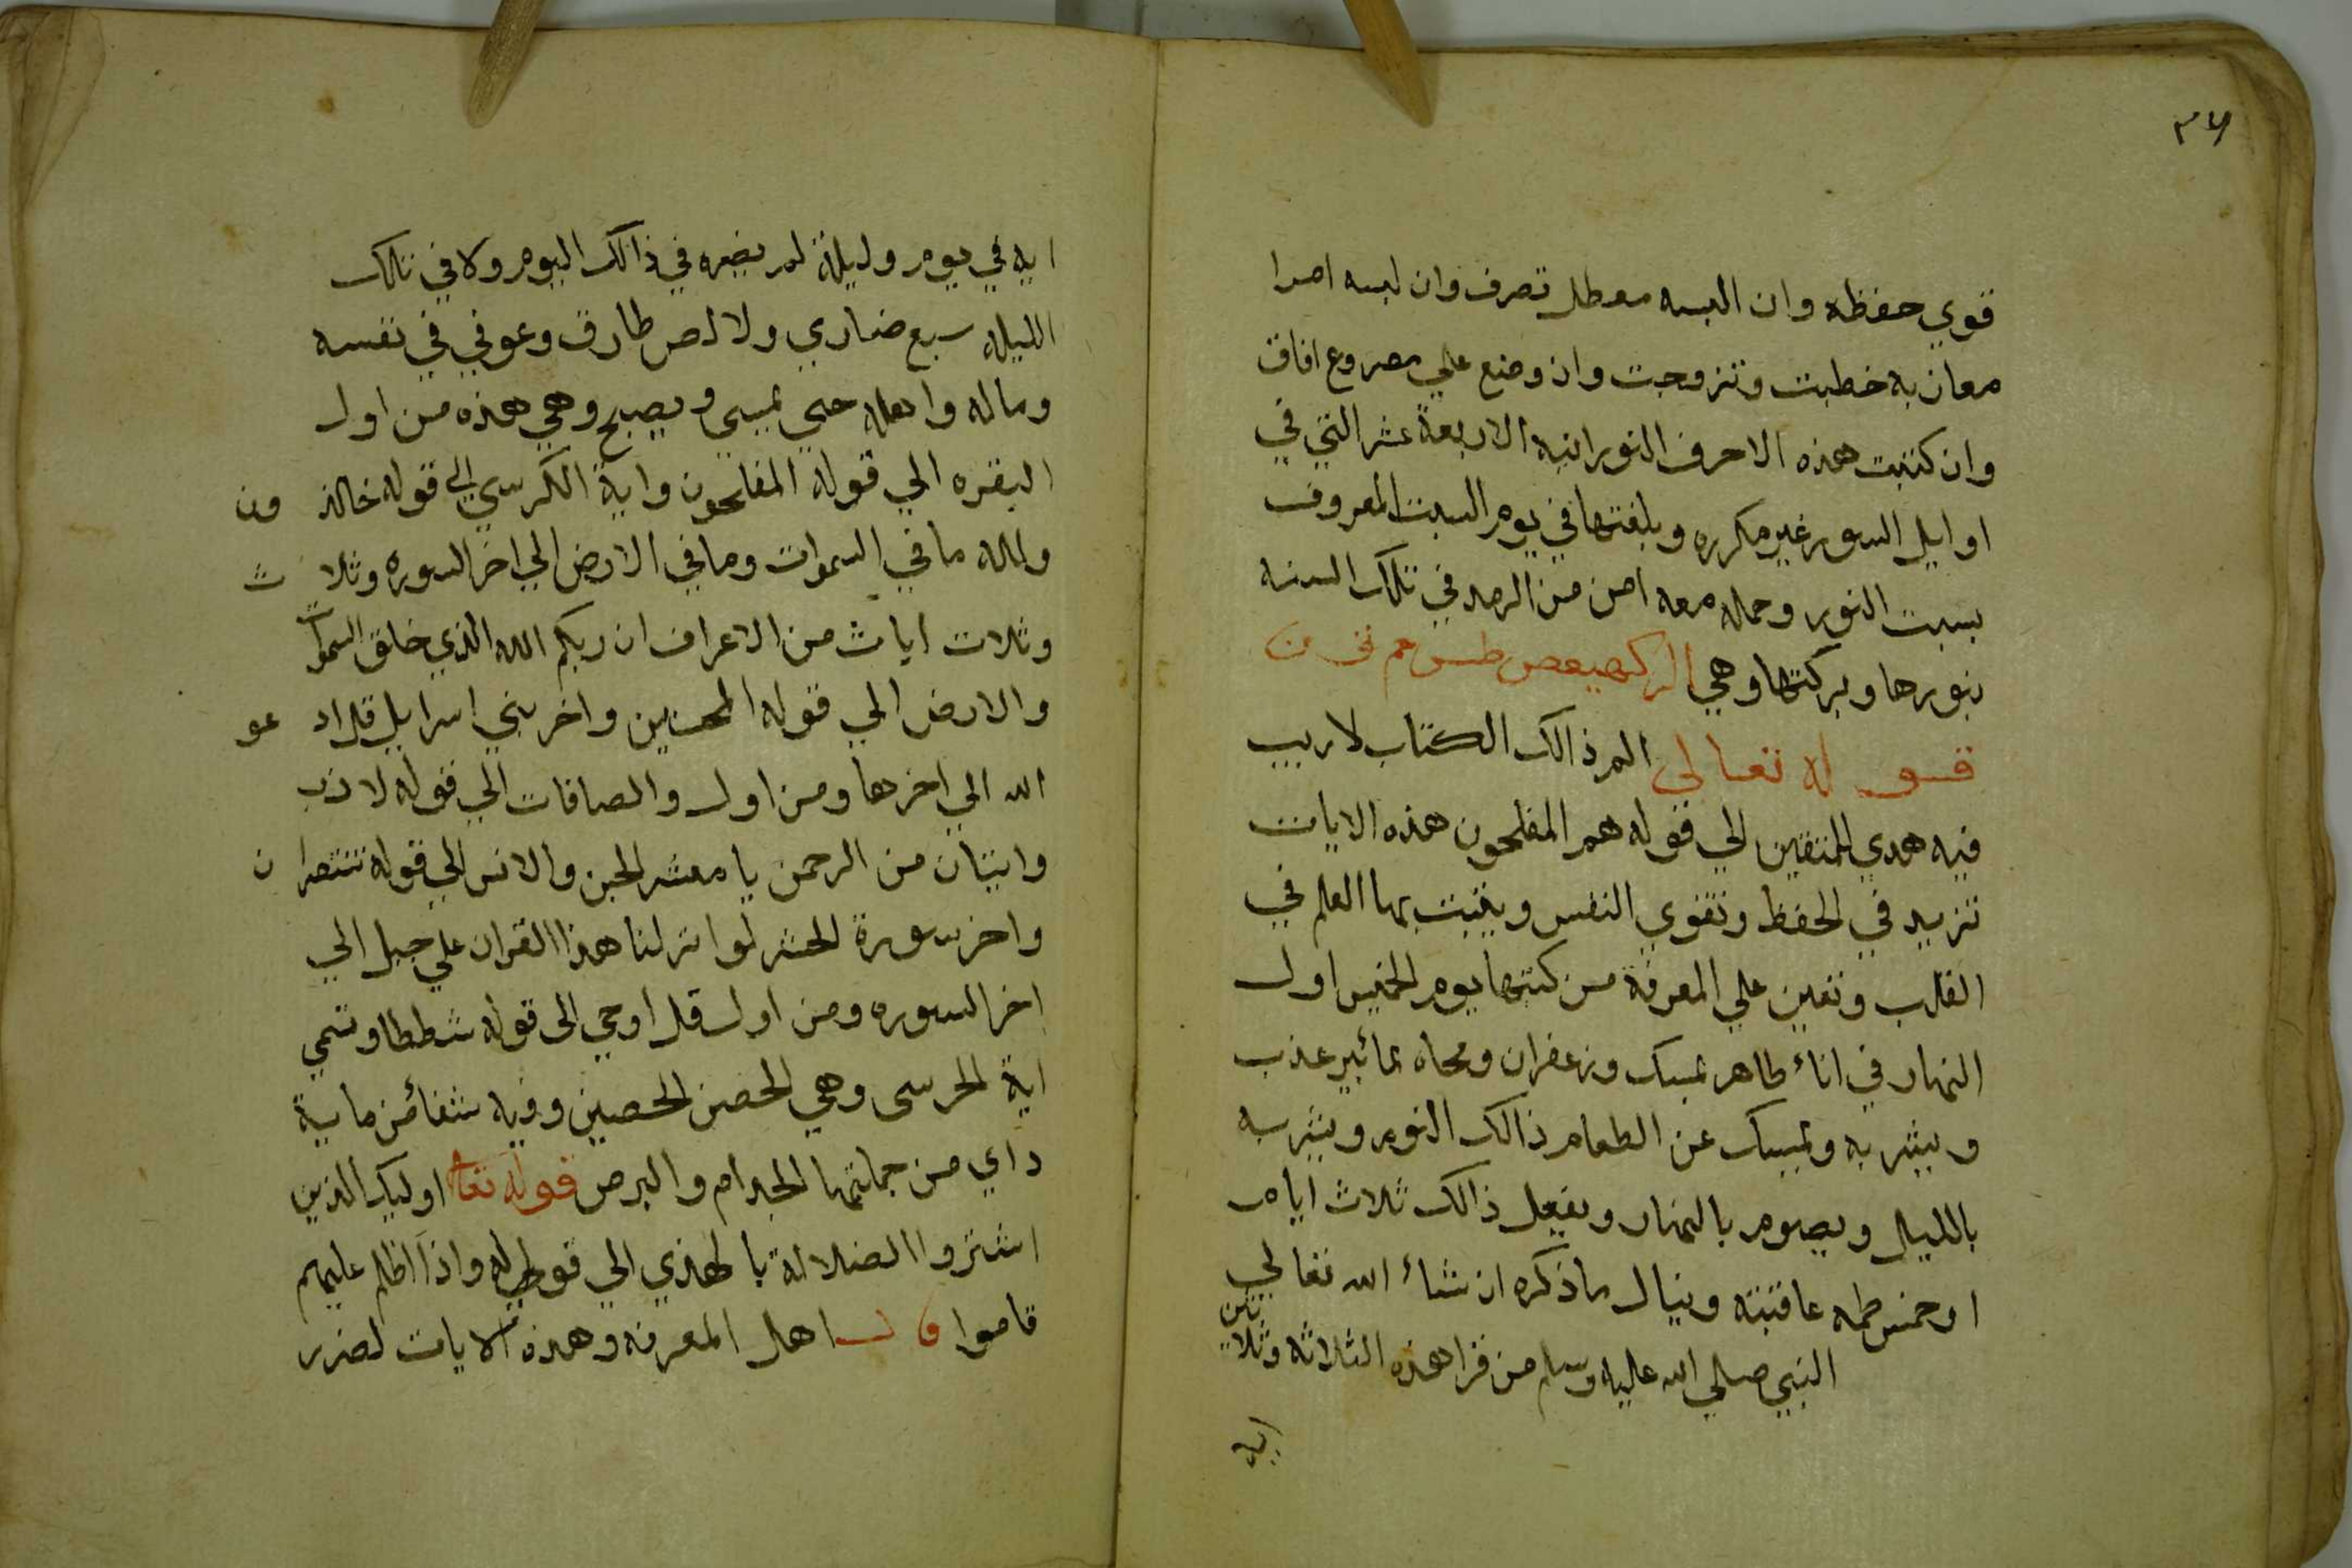 ٣٧
قوي حفظه وان البسه معطل تصرف وان لبسه امرا
معان به خطبت وتزوجت وان وضع علي مصروع افاق
وان كتبت هذه الاحرف النورانيه الاربعة عشر التي في
اوايل السور غير مكرره وبلغتها في يوم السبت المعروف
بسبت النور وحمله معه امن من الرمد في تلك السنه
بنورها وبركتها وهي الر كهيعص طس حم ق ن
قوله تعالى الم ذالك الكتاب لا ريب
فيه هدي للمتقين الي قوله هم المفلحون هذه الايات
تزيد في الحفظ وتقوي النفس ويثبت بها العلم في
القلب وتعين علي المعرفة من كتبها يوم الخميس اول
النهار في اناء طاهر بمسك وزعفران ومحاه بمائبير عذب
ويشربه ويمسك عن الطعام ذالك اليوم ويشربه
بالليل ويصوم بالنهار ويفعل ذالك ثلاث ايام
او خمس عاقبته وينال ما ذكره ان شاء الله تعالي
النبي صلي الله عليه وسلم من قرا هذه الثلاثه وثلاثين
ايه
ايه في يوم وليلة لم يضره في ذالك اليوم ولا في تلك
الليله سبع ضاري ولا لص طارق وعوفي في نفسه
وماله واهله حتي يمسي ويصبح وهي هذه من اول
البقره الي قوله المفلحون واية الكرسي الي قوله خالدون
ولله ما في السموات وما في الارض الي اخر السوره وثلاث
وثلاث ايات من الاعراف ان ربكم الله الذي خلق السموات
والارض الي قوله المحسنين واخر بني اسرايل قل ادعو
الله الي اخرها ومن اول والصافات الي قوله لازب
وايتان من الرحمن يا معشر الجن والانس الي قوله تنتصران
واخر سورة الحشر لو انزلنا هذا القران علي جبل الي
اخر السوره ومن اول قل اوحي الى قوله شططا وتسمي
اية الحرسى وهي الحصن الحصين وفيه شفائمن ماية
داي من جملتها الجدام والبرص قوله تعا اوليك الذين
اشتروا الضلالة بالهدي الي قوله واذا اظلم عليهم
قاموا قال اهل المعرفه وهذه الايات لضرر